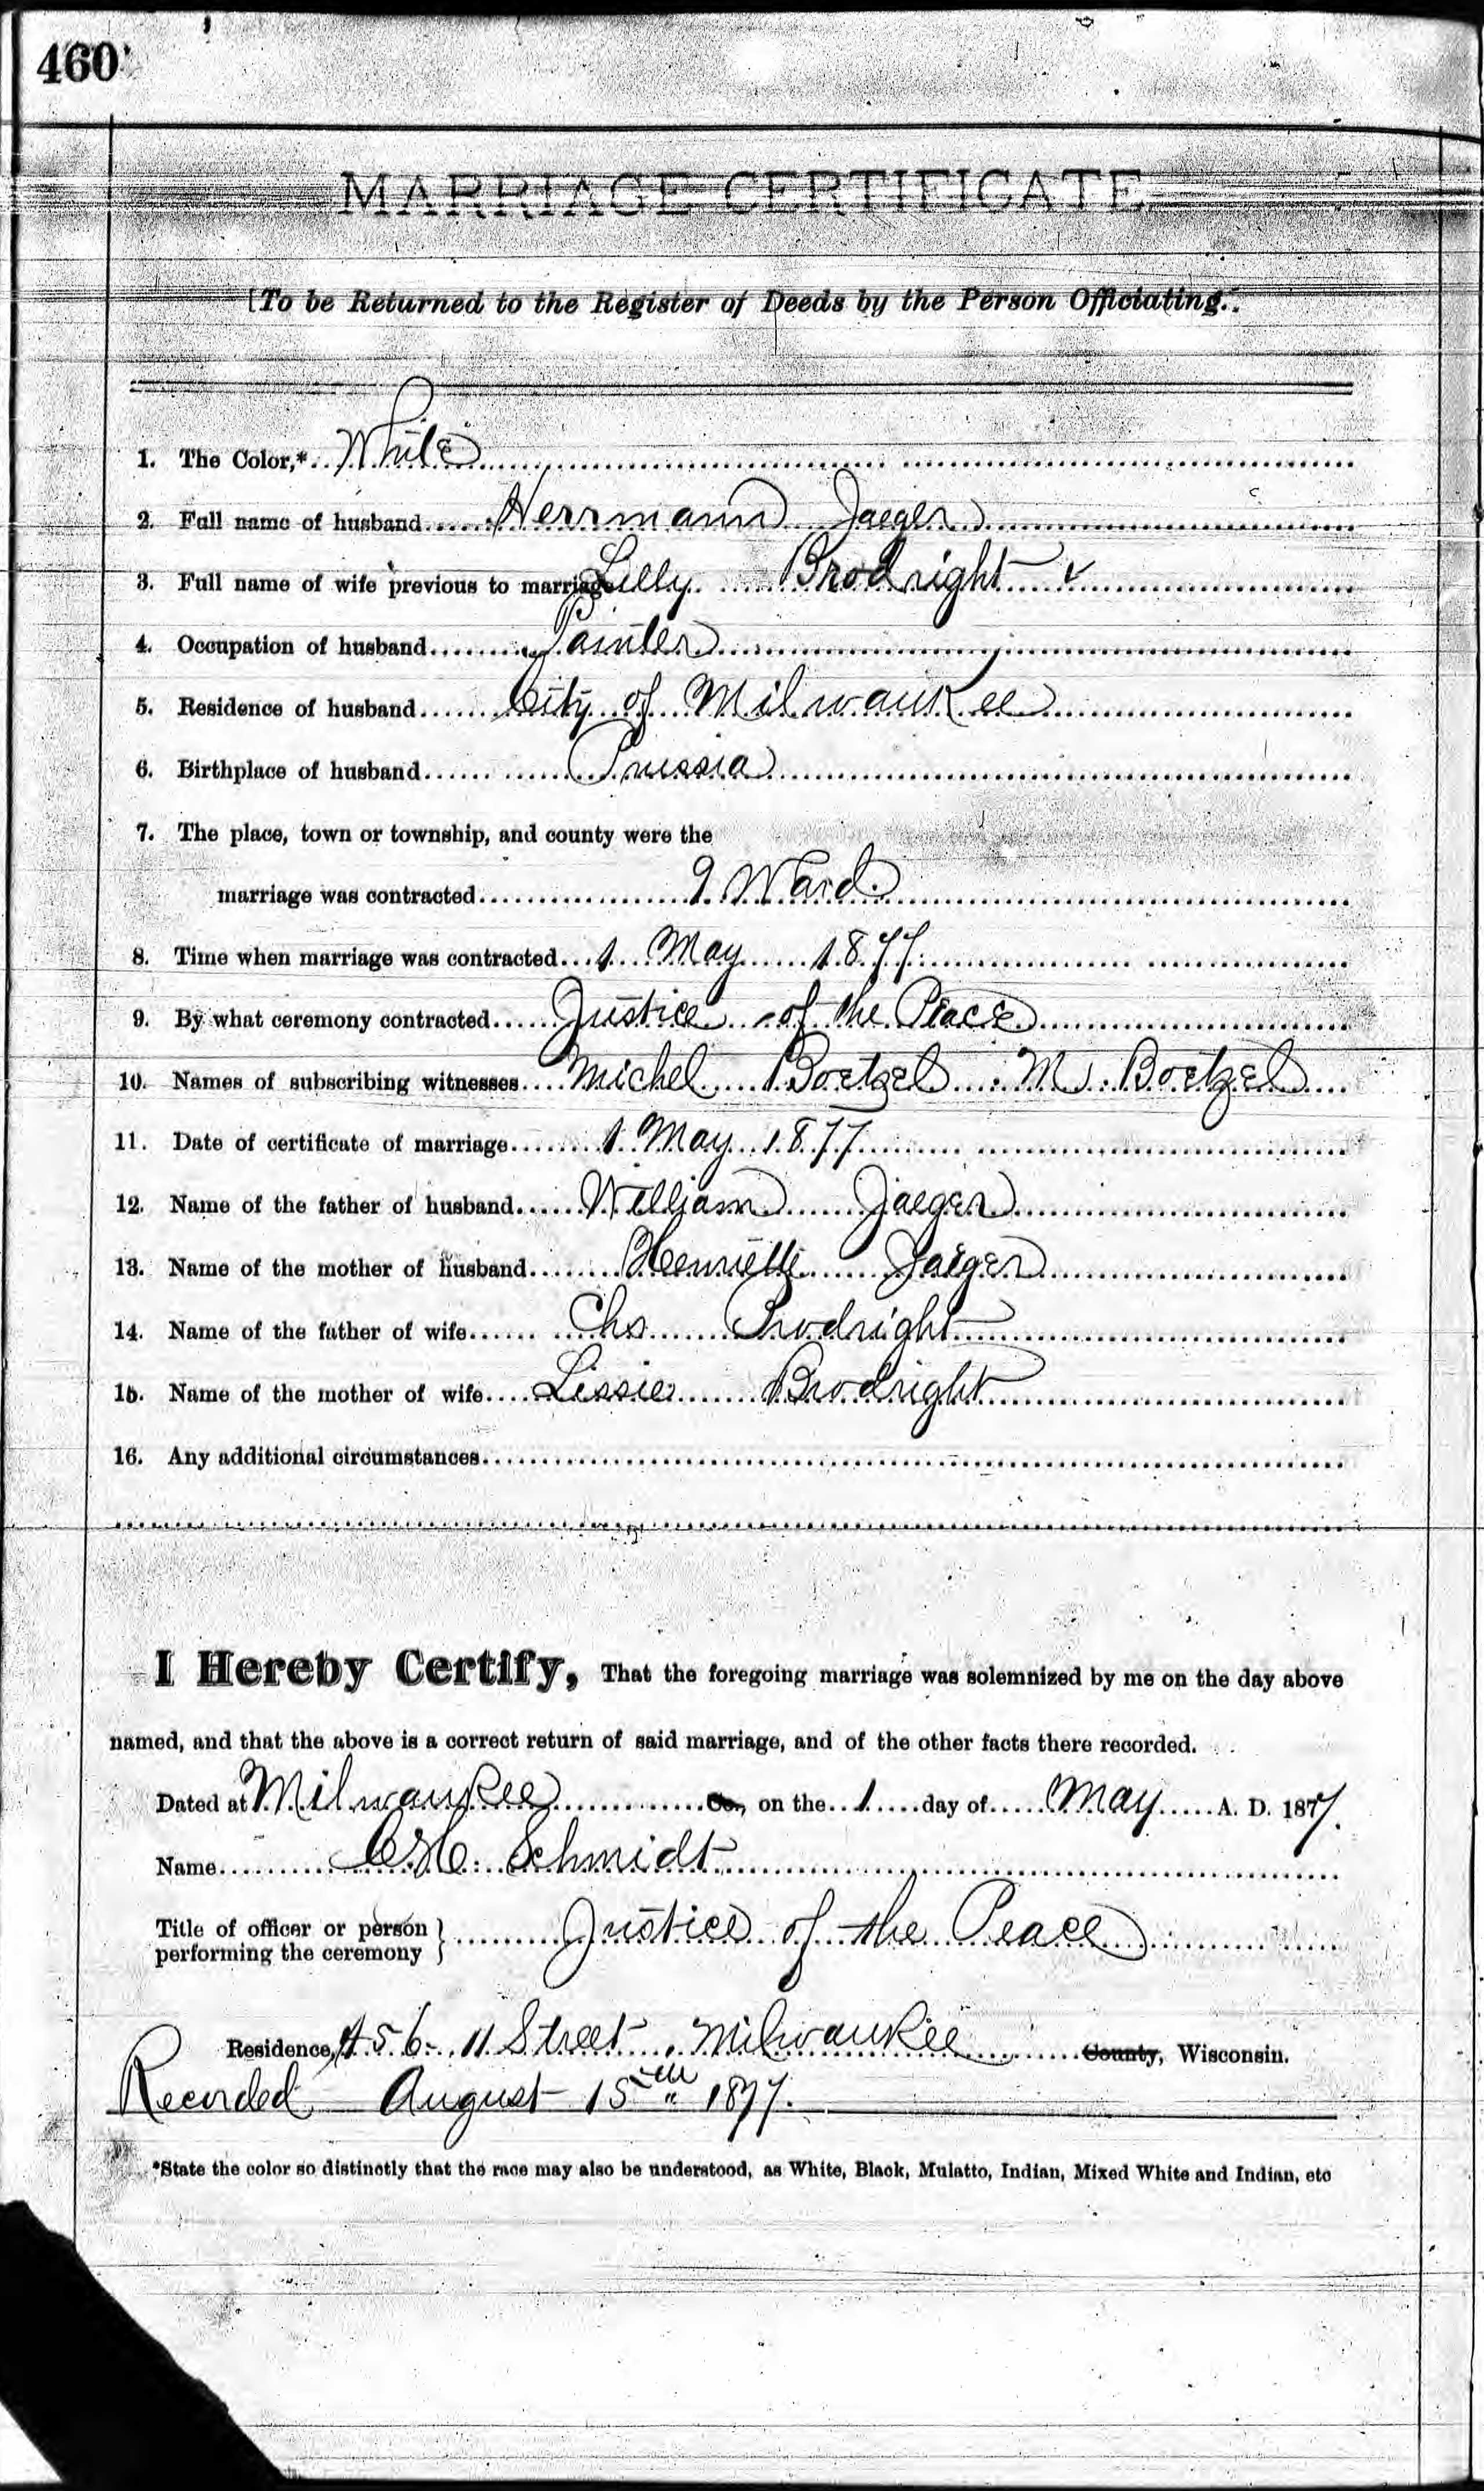 460
MARRIAGE CERTIFICATE
[To be Returned to the Register of Deeds by the Person Officiating.
1. The Color,* White
2. Full name of husband Herrmann Jaeger
3. Full name of wife previous to marriage Lilly Brodright
4. Occupation of husband Painter
5. Residence of husband City of Milwaukee
6. Birthplace of husband Prussia
7. The place, town or township, and county were the
marriage was contracted 9 Ward.
8. Time when marriage was contracted 1 May 1877.
9. By what ceremony contracted Justice of the Peace
10. Names of subscribing witnesses Michel Boetzel : M. Boetzel
11. Date of certificate of marriage 1 May 1877
12. Name of the father of husband William Jaeger
13. Name of the mother of husband Henriette Jaeger
14. Name of the father of wife Chs Brodright
15. Name of the mother of wife Lissie Brodright
16. Any additional circumstances
I Hereby Certify, That the foregoing marriage was solemnized by me on the day above
named, and that the above is a correct return of said marriage, and of the other facts there recorded.
Dated at Milwaukee Co., on the 1 day of May A. D. 1877.
Name Schmidt
Title of officer or person } Justice of the Peace
performing the ceremony
Residence, 456 11 Street, Milwaukee County, Wisconsin.
Recorded August 15th 1877.
*State the color so distinctly that the race may also be understood, as White, Black, Mulatto, Indian, Mixed White and Indian, etc